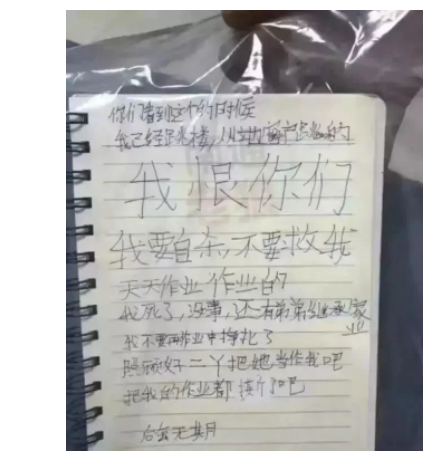 你们看到这个的时候
我已经跳楼,从
我恨你们
我要自杀,不要救我
天天作业作业的
我死了,没事,还有弟弟继承家业
我不要再作业中挣扎了
照顾好二丫把她当作我吧
把我的作业都烧了吧
后会无期